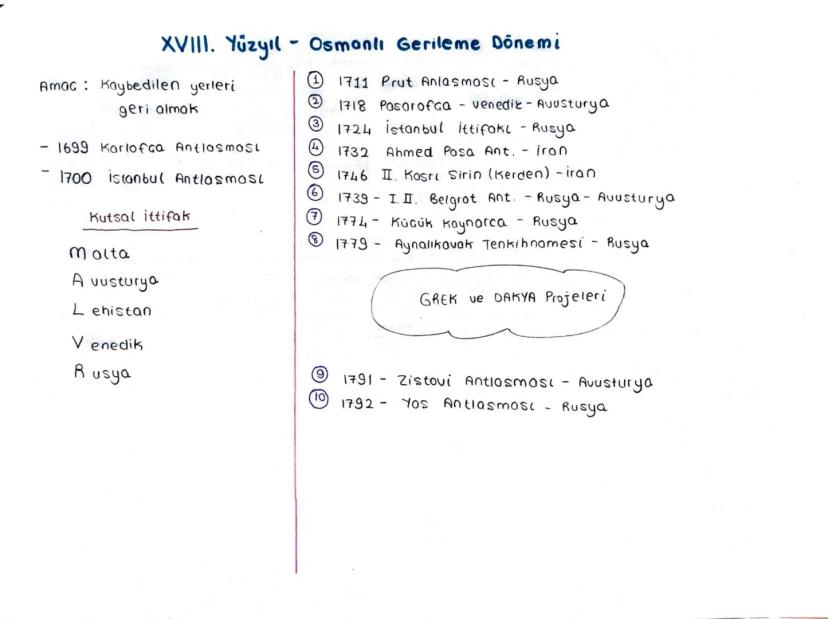 XVIII. Yüzyıl - Osmanlı Gerileme Dönemi
Amaç : Kaybedilen yerleri
geri almak
- 1699 Karlofça Antlaşması
- 1700 İstanbul Antlaşması
Kutsal ittifak
Malta
Avusturya
Lehistan
Venedik
Rusya
① 1711 Prut Anlaşması - Rusya
② 1718 Pasarofça - Venedik - Avusturya
③ 1724 İstanbul İttifakı - Rusya
④ 1732 Ahmed Paşa Ant. - İran
⑤ 1746 II. Kasrı Şirin (Kerden) - iran
⑥ 1739 - I. II. Belgrat Ant. - Rusya - Avusturya
⑦ 1774 - Küçük Kaynarca - Rusya
⑧ 1779 - Aynalıkavak Tenkihnamesi - Rusya
GREK ve DAKYA Projeleri
⑨ 1791 - Ziştovi Antlaşması - Avusturya
⑩ 1792 - Yaş Antlaşması - Rusya